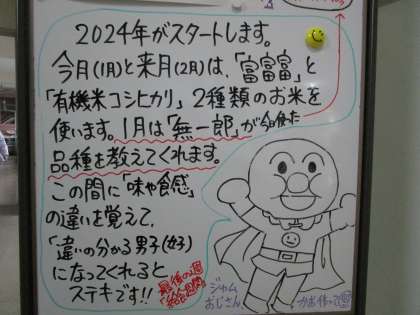 2024年がスタートします。
今月(1月)と来月(2月)は、「富富富」と
「有機米コシヒカリ」2種類のお米を
使います。1月は「無一郎」が今日食べた
品種を教えてくれます。
この間に「味や食感」
の違いを覚えて、
「違いの分かる男子(女子)
になってくれると
ステキです!!
最後の週
「給食週間」
ジャム
おじさん